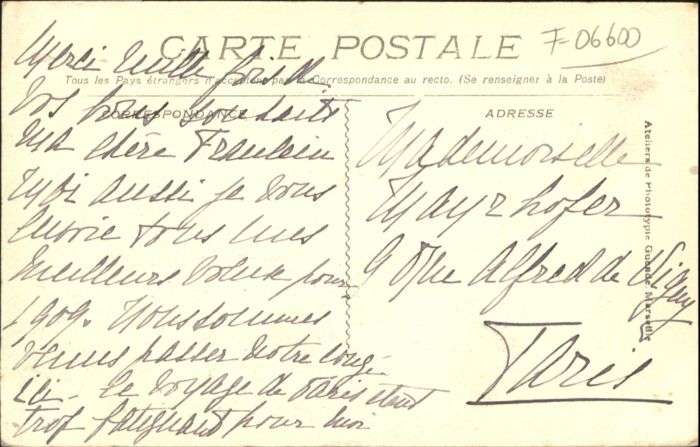 CARTE POSTALE
F-06600
Tous les Pays étrangers n'acceptent pas la Correspondance au recto. (Se renseigner à la Poste)
CORRESPONDANCE
Merci mille fois de
vos bons souhaits
ma chère Fraulein
moi aussi je vous
envoie tous mes
meilleurs vœux pour
1909. Nous sommes
venus passer notre congé
ici - le voyage de Paris etant
trop fatiguant pour moi
ADRESSE
Mademoiselle
Mayrhofer
9 Rue Alfred de Vigny
Paris
Ateliers de Phototypie Guende, Marseille